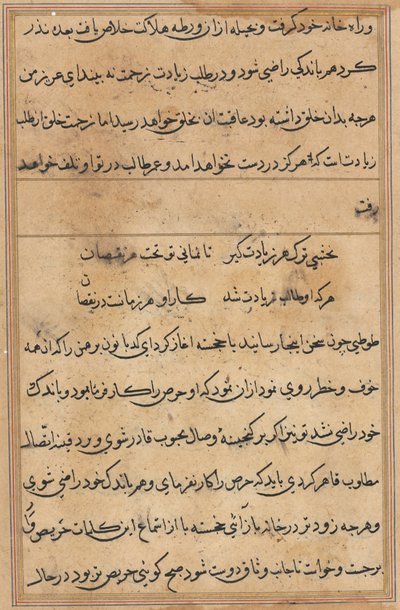 و راه خانه خود گرفت و بحیله از ان ورطه هلاکت خلاص یافت بعده نذر
کرد هر باندکی راضی شود و در طلب زیادت زحمت نه بیند ای عزیز من
هرچه بدان خلق داشته بود عاقبت ان بخلق خواهد رسید اما زحمت خلق از طلب
زیادت است که هرگز در دست نخواهد امد و عمر طالب در تو او تلف خواهد
رفت
نخشبی ترک هر زیادت گیر تا نمانی تو تحت هر نقصان
هر که او طالب زیادت شد کار او هر زمانست در نقصان
طوطی چون سخن اینجا رسانید با خجسته اغاز کرد ای کدبانو برهمن را که از همه
خوف و خطر روی نمود از ان نمود که او حرص را کار فرما بود و باندک
خود راضی نشد تو نیز اگر بر گنجینه وصال محبوب قادر شوی و بر دفینه اتصال
مطلوب قاهر گردی باید که حرص را کار نفرمای و هم باندک خود راضی شوی
و هرچه زودتر در خانه باز آئی خجسته با از استماع این کلمات حریص
برجست و خواست تا جانب وثاق دوست شود صبح گوئی حریص تر بود در حال